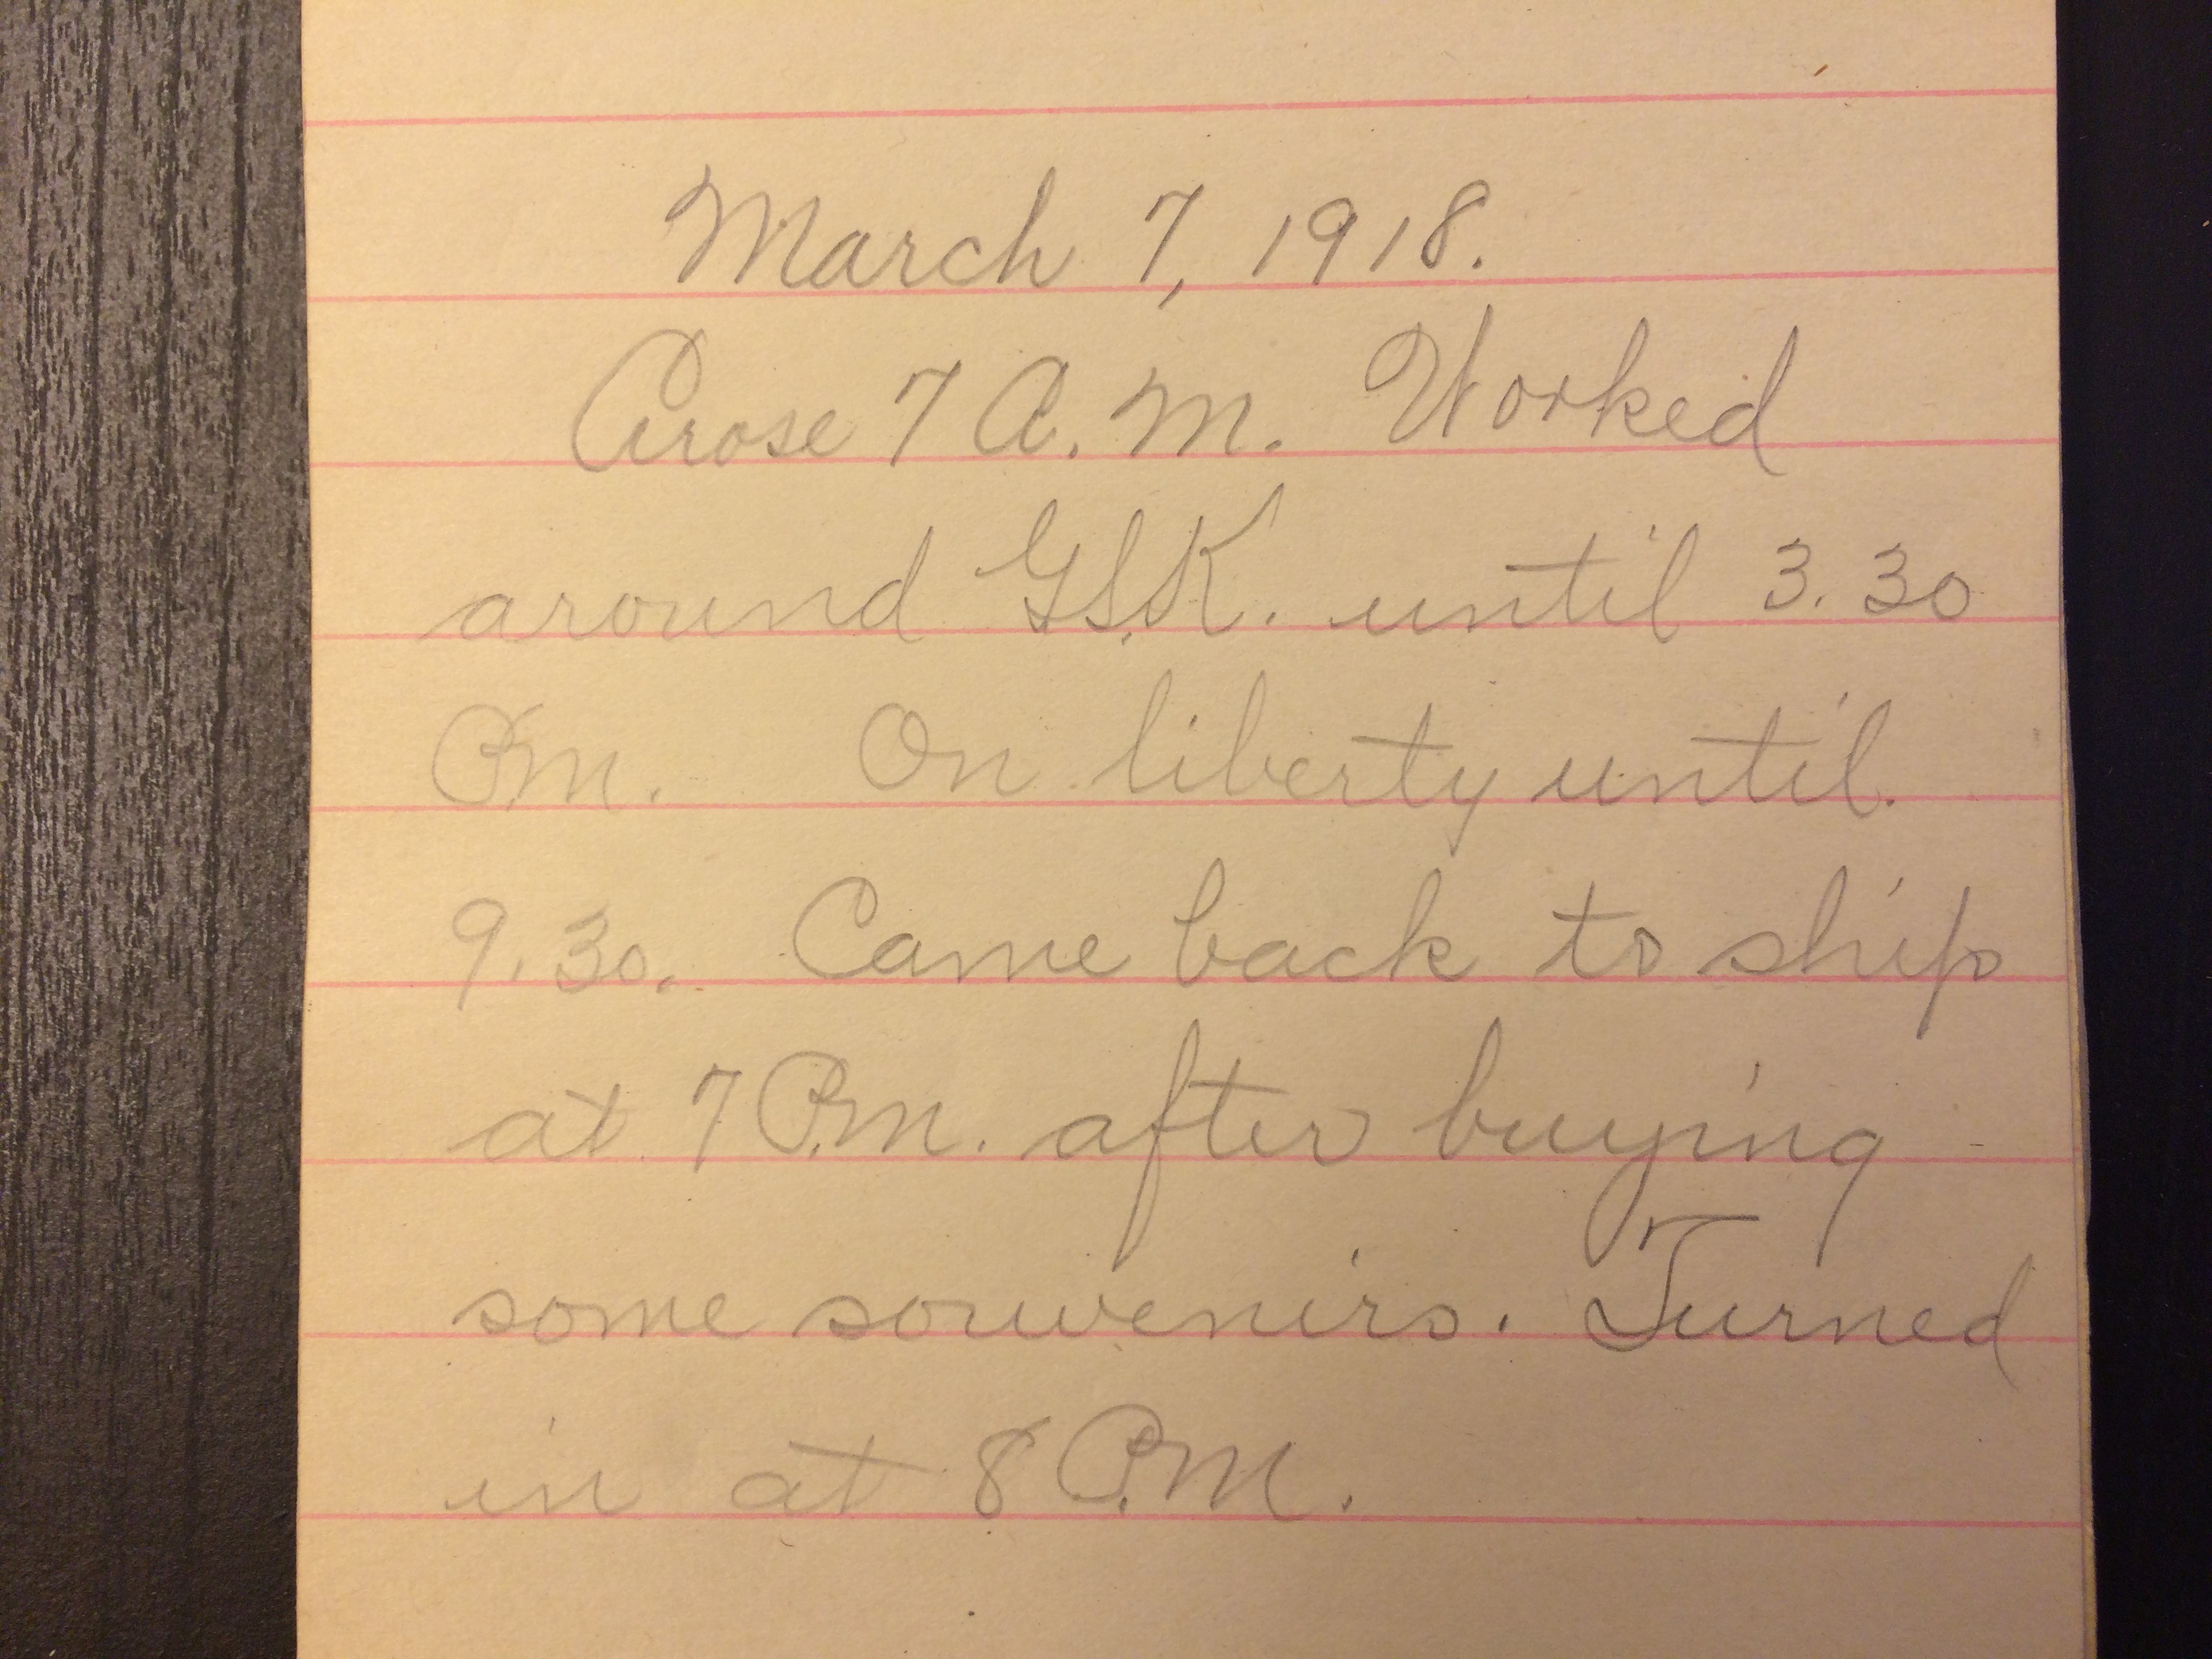 March 7, 1918.
Arose 7 A.M. Worked
around G.S.K. until 3.30
P.M. On liberty until
9.30. Came back to ship
at 7 P.M. after buying
some souvenirs. Turned
in at 8 P.M.